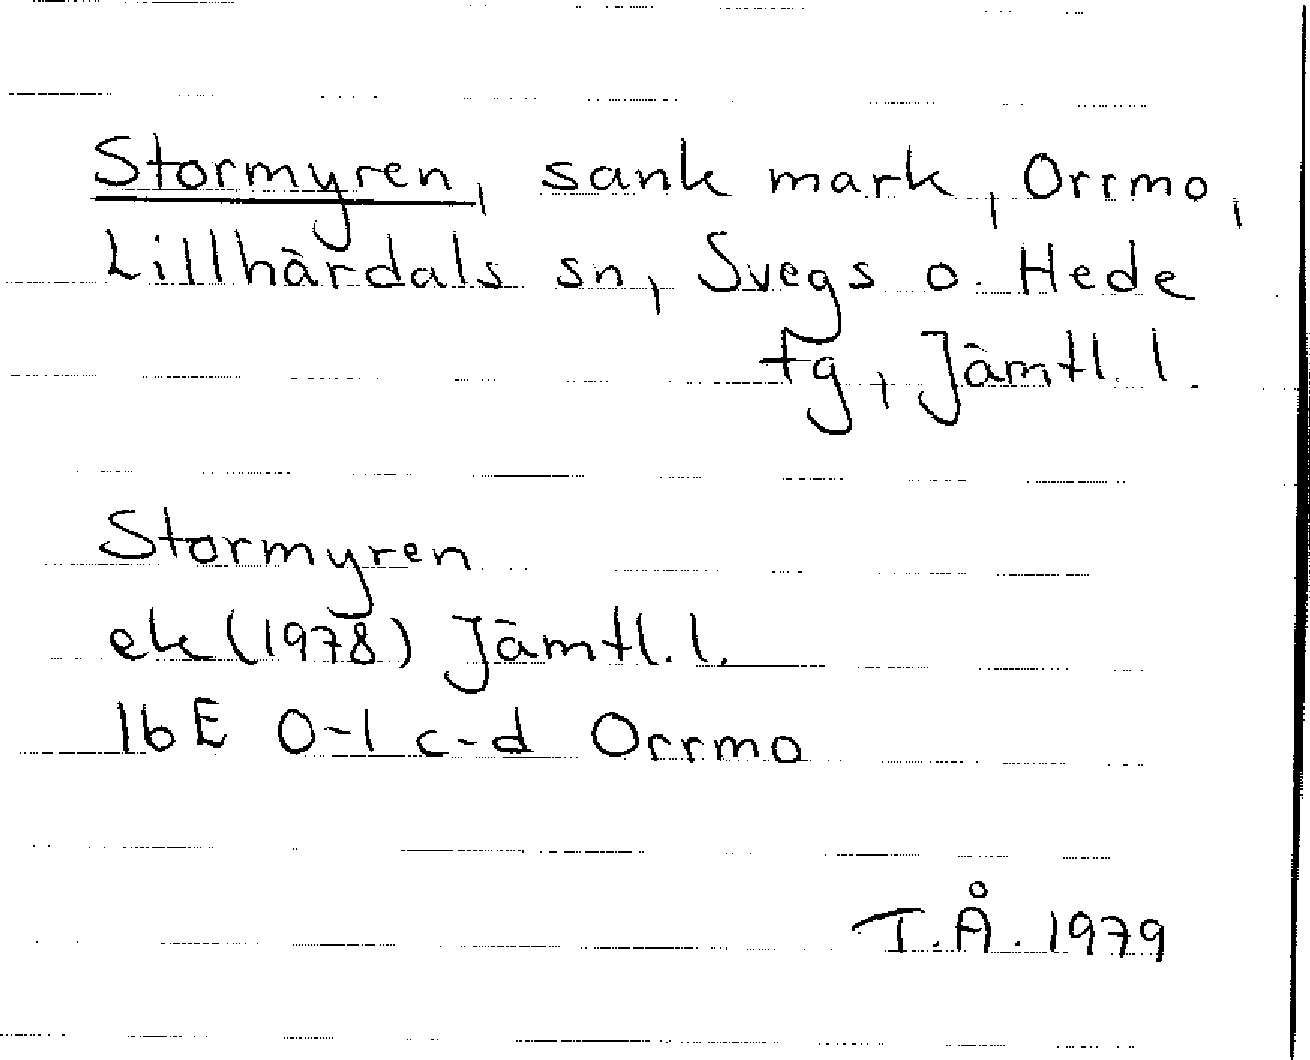 Stormyren, sank mark, Orrmo,
Lillhärdals sn, Svegs o. Hede
tg, Jämtl. l.
Stormyren
ek (1978) Jämtl. l.
16E 0-1 c-d Orrmo
T.Å. 1979